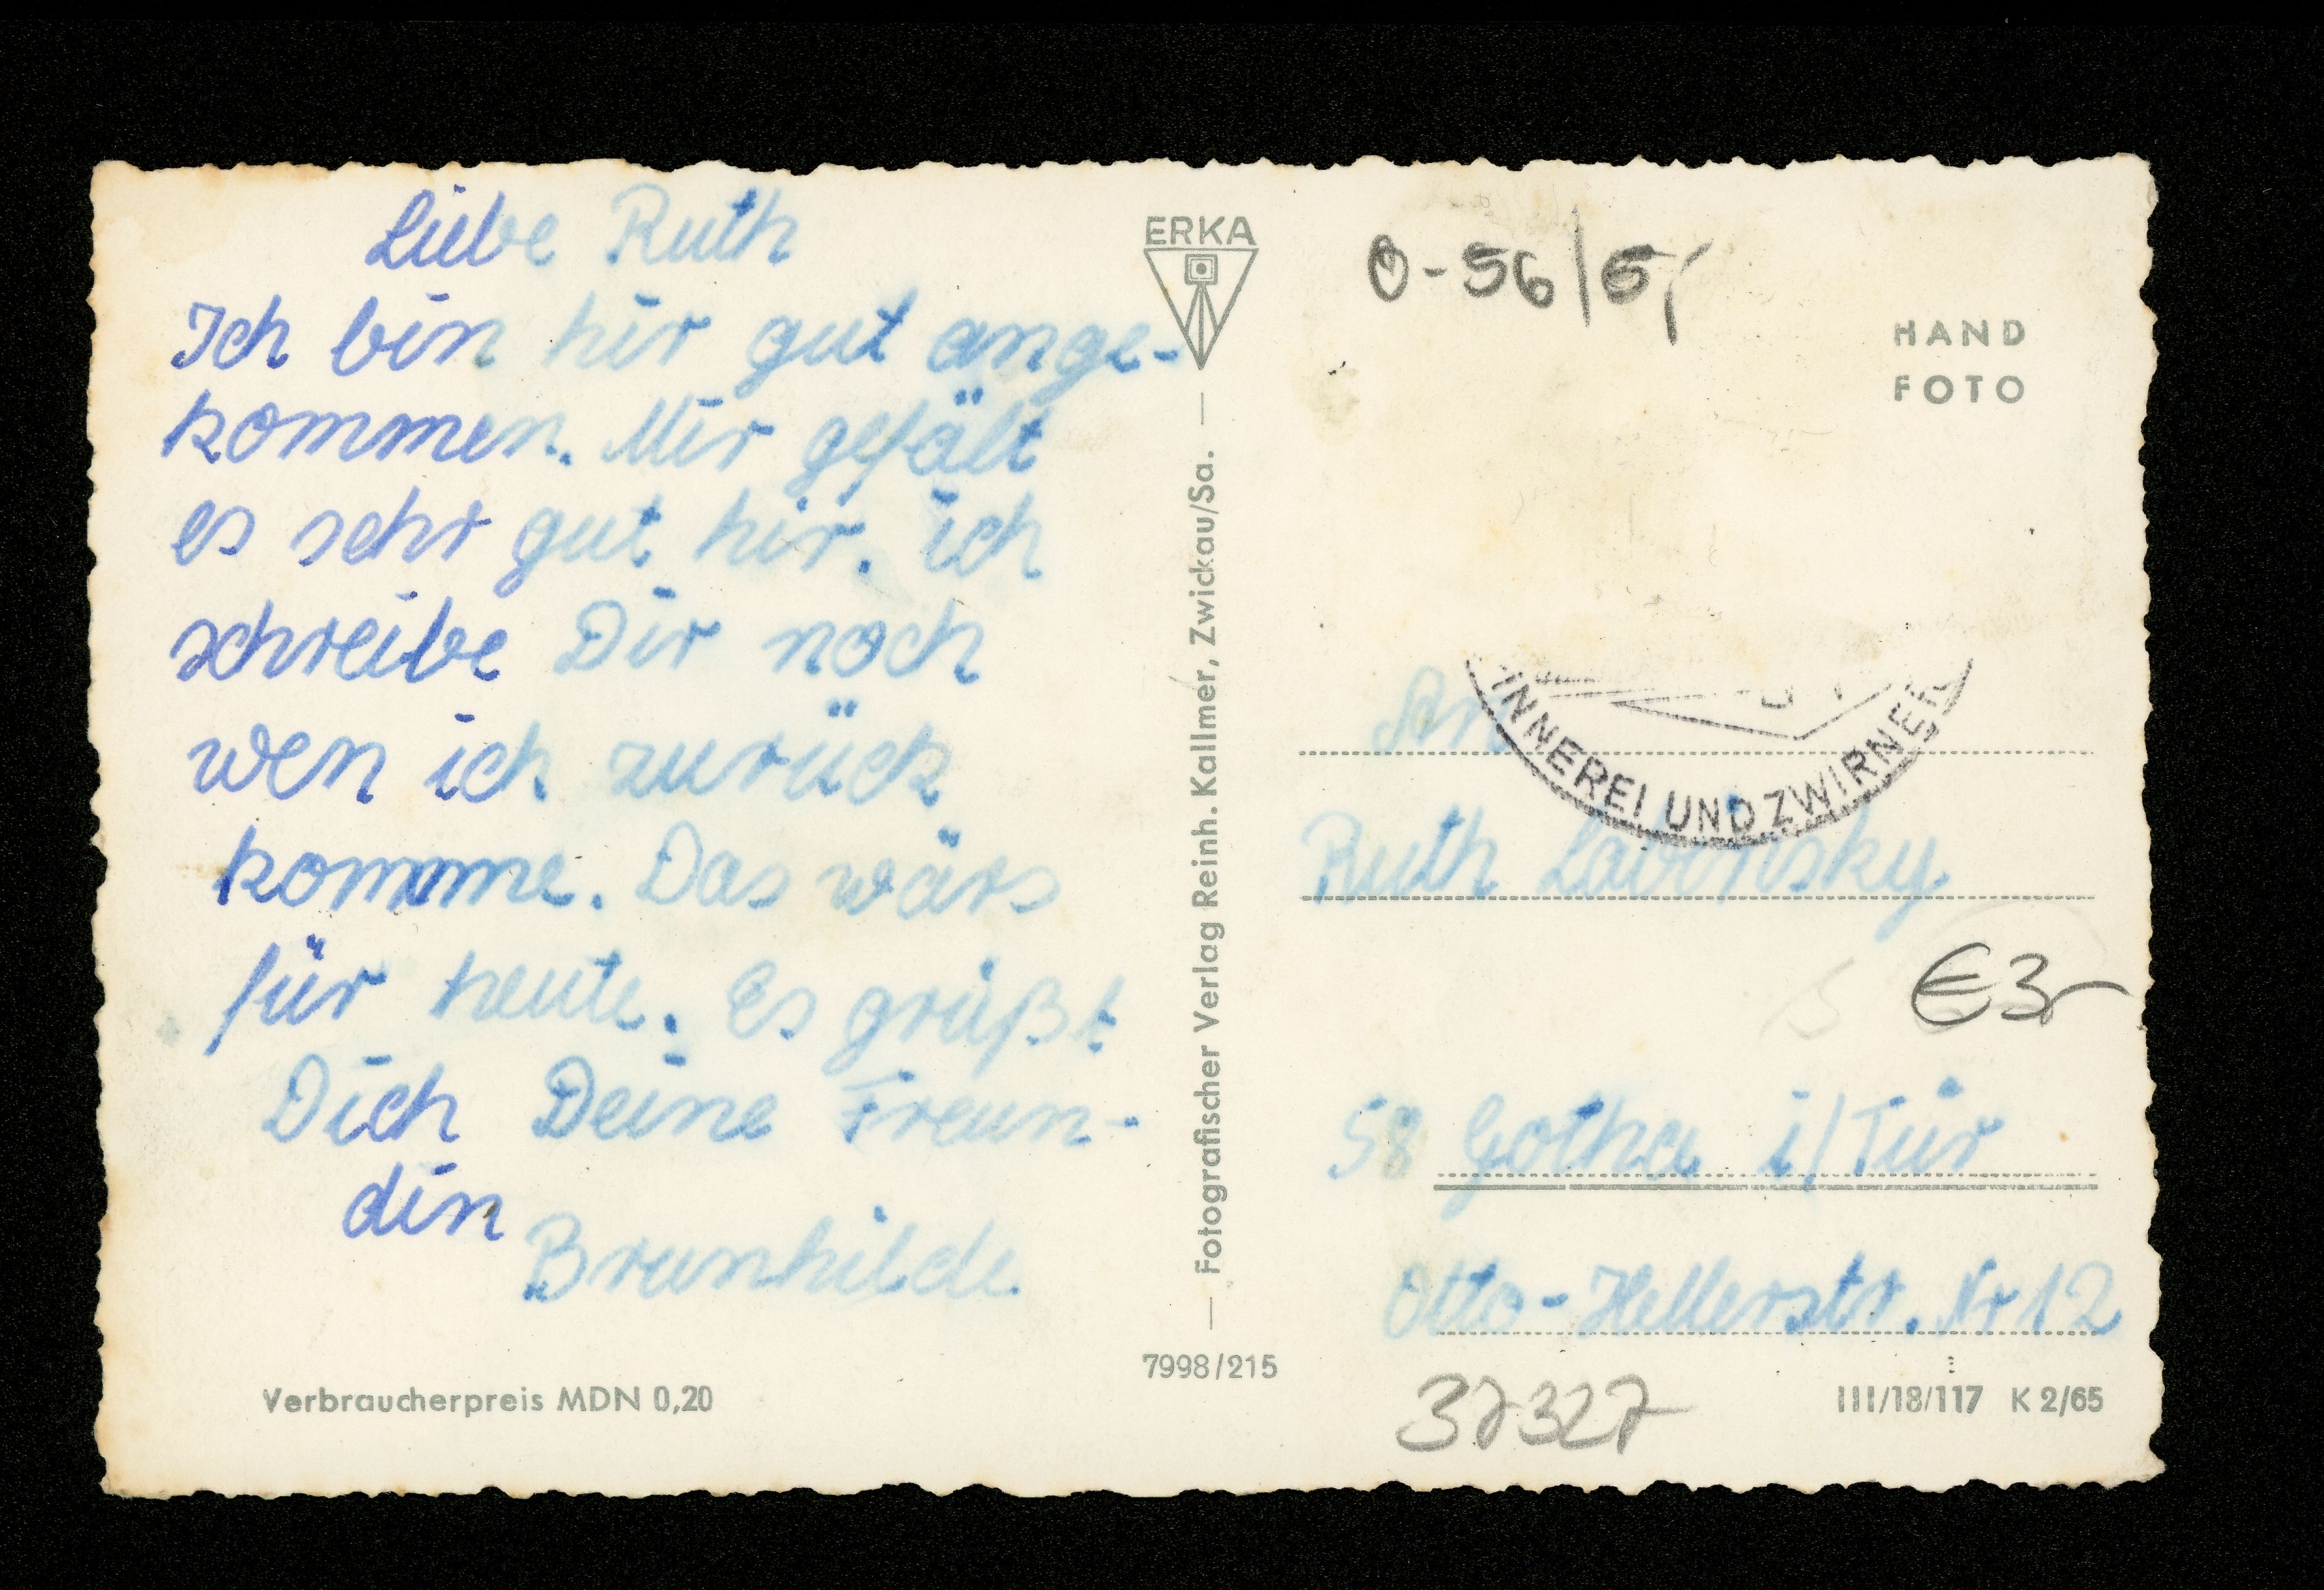 Liebe Ruth
Ich bin hir gut ange-
kommen. Mir gefält
es sehr gut hir. ich
schreibe Dir noch
wen ich zurück
komme. Das wärs
für heute. Es grüßt
Dich Deine Freun-
din
Brunhilde
Verbraucherpreis MDN 0,20
ERKA
Fotografischer Verlag Reinh. Kallmer, Zwickau/Sa.
7998/215
0-56/5,-
HAND
FOTO
INNEREI UND ZWIRNER
An
Ruth
€3,-
58 Gotha i/Tür
Otto-Hellerstr. Nr 12
37327
III/18/117 K 2/65